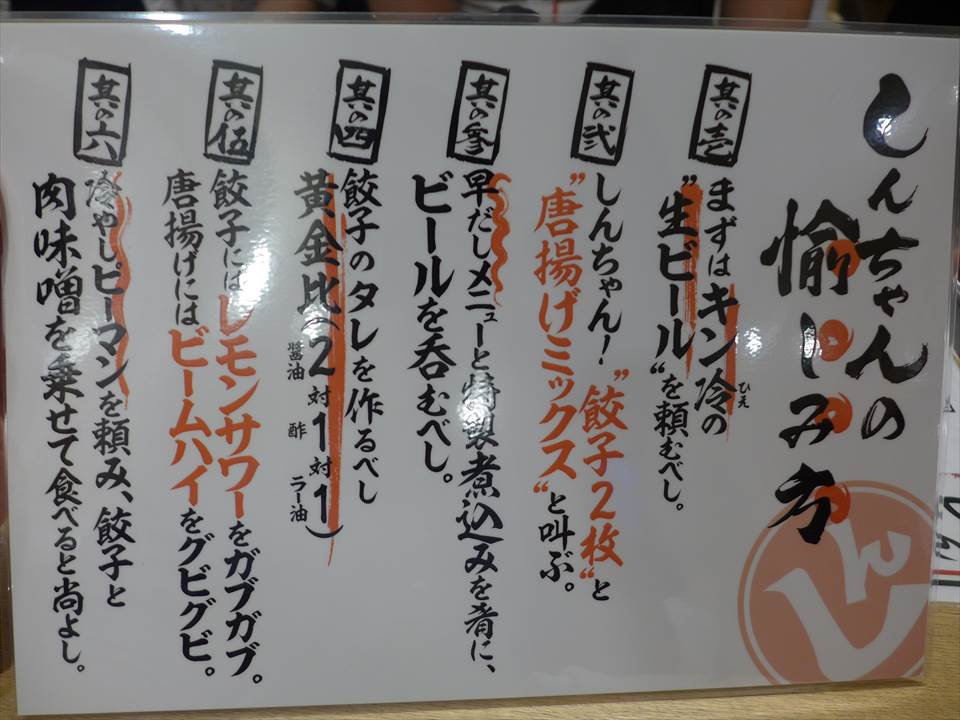 しんちゃんの
愉しみ方
其の壱
まずはキン冷の
ひえ
"生ビール"を頼むべし。
其の弐
しんちゃん!"餃子2枚"と
"唐揚げミックス"と叫ぶ。
其の参
早だしメニューと特製煮込みを肴に、
ビールを呑むべし。
其の四
餃子のタレを作るべし
黄金比(2対1対1)
醤油 酢 ラー油
其の伍
餃子にはレモンサワーをガブガブ。
唐揚げにはビームハイをグビグビ。
其の六
冷やしピーマンを頼み、餃子と
肉味噌を乗せて食べると尚よし。
しん